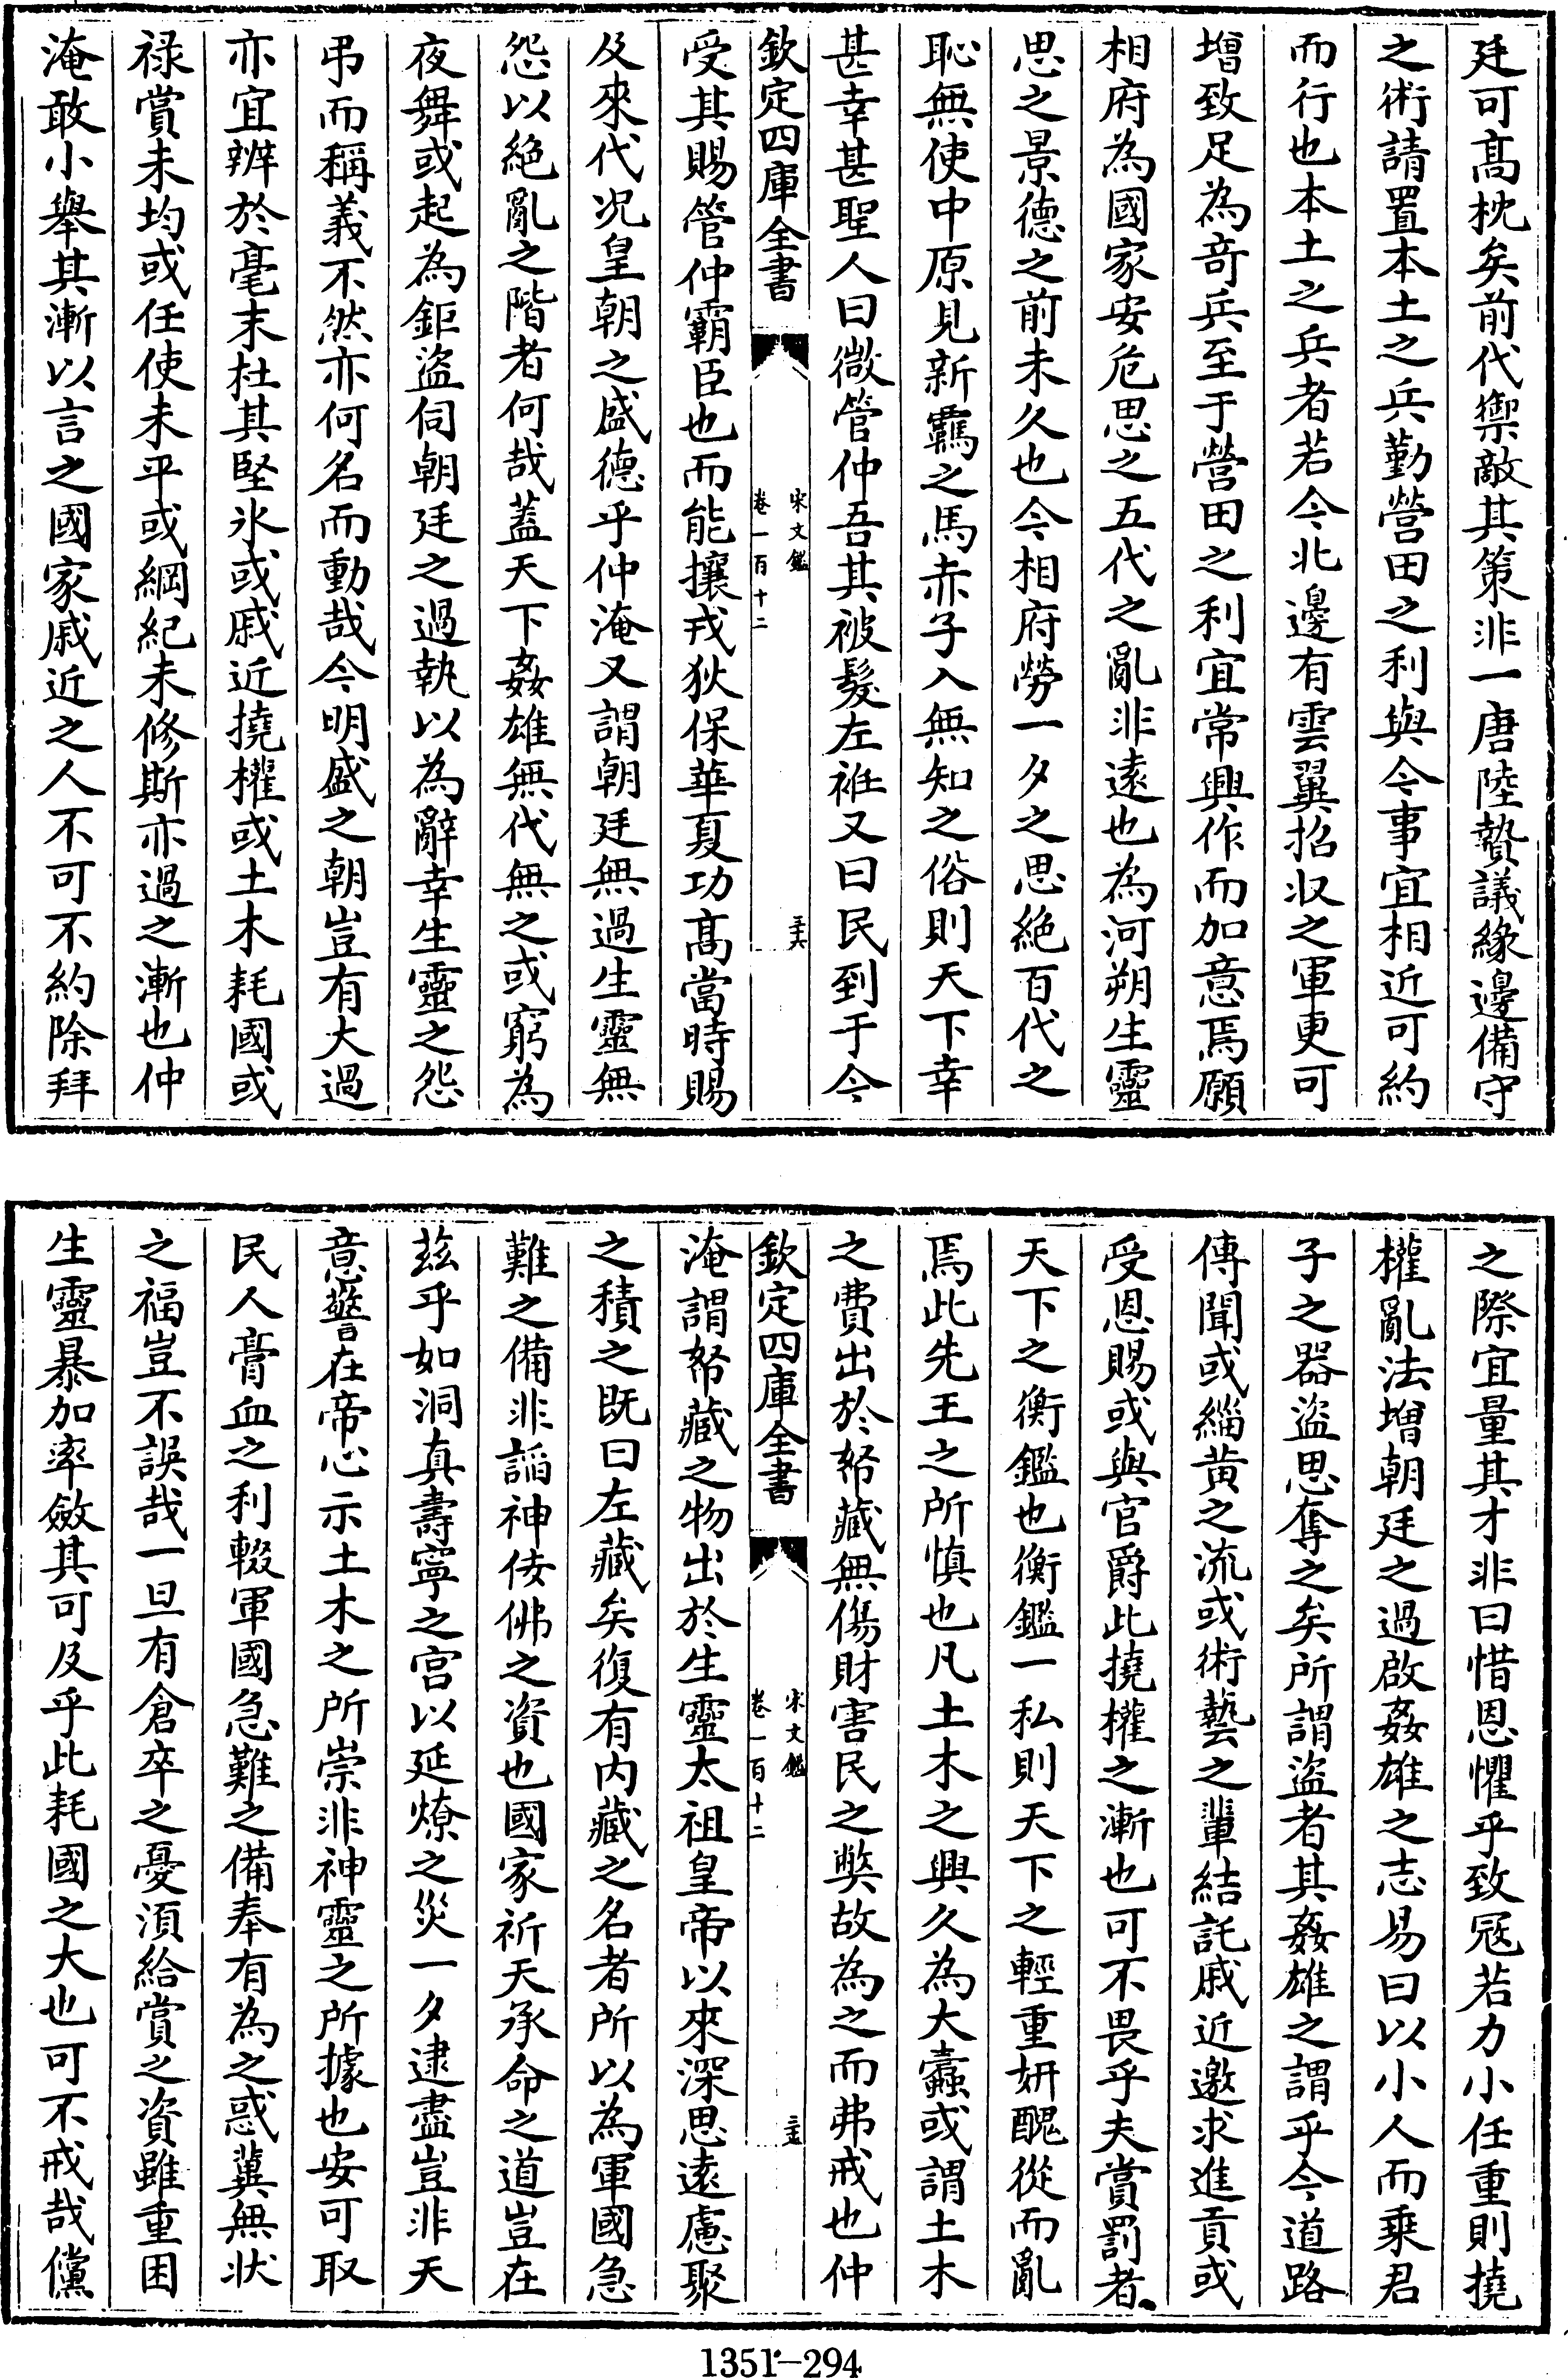 廷可髙枕矣前代禦敵其策非一唐陸贄議緣邊備守
之術請置本土之兵勤營田之利與今事宜相近可約
而行也本土之兵者若今北邊有雲翼招収之軍更可
增致足為竒兵至于營田之利宜常興作而加意焉願
相府為國家安危思之五代之亂非逺也為河朔生靈
思之景德之前未久也今相府勞一夕之思絶百代之
恥無使中原見新羈之馬赤子入無知之俗則天下幸
甚幸甚聖人曰微管仲吾其被髮左衽又曰民到于今
欽定四庫全書
宋文鑑
卷一百十二
受其賜管仲霸臣也而能攘戎狄保華夏功髙當時賜
及來代况皇朝之盛德乎仲淹又謂朝廷無過生靈無
怨以絶亂之階者何哉蓋天下姦雄無代無之或窮為
夜舞或起為鉅盜伺朝廷之過執以為辭幸生靈之怨
弔而稱義不然亦何名而動哉今明盛之朝豈有大過
亦宜辨於毫末杜其堅氷或戚近撓權或土木耗國或
禄賞未均或任使未平或綱紀未修斯亦過之漸也仲
淹敢小舉其漸以言之國家戚近之人不可不約除拜
之際宜量其才非曰惜恩懼乎致冦若力小任重則撓
權亂法增朝廷之過啟姦雄之志易曰以小人而乘君
子之器盜思奪之矣所謂盜者其姦雄之謂乎今道路
傳聞或緇黄之流或術藝之輩結託戚近邀求進貢或
受恩賜或與官爵此撓權之漸也可不畏乎夫賞罰者
天下之衡鑑也衡鑑一私則天下之輕重妍醜從而亂
焉此先王之所慎也凡土木之興久為大蠹或謂土木
之費出於帑藏無傷財害民之獘故為之而弗戒也仲
欽定四庫全書
宋文鑑
卷一百十二
淹謂帑藏之物出於生靈太祖皇帝以來深思逺慮聚
之積之既曰左藏矣復有内藏之名者所以為軍國急
難之備非謟神佞佛之資也國家祈天承命之道豈在
兹乎如洞真壽寧之宫以延燎之災一夕逮盡豈非天
意警在帝心示土木之所崇非神靈之所據也安可取
民人膏血之利輟軍國急難之備奉有為之惑冀無狀
之福豈不誤哉一旦有倉卒之憂湏給賞之資雖重困
生靈暴加率斂其可及乎此耗國之大也可不戒哉儻
1351-294